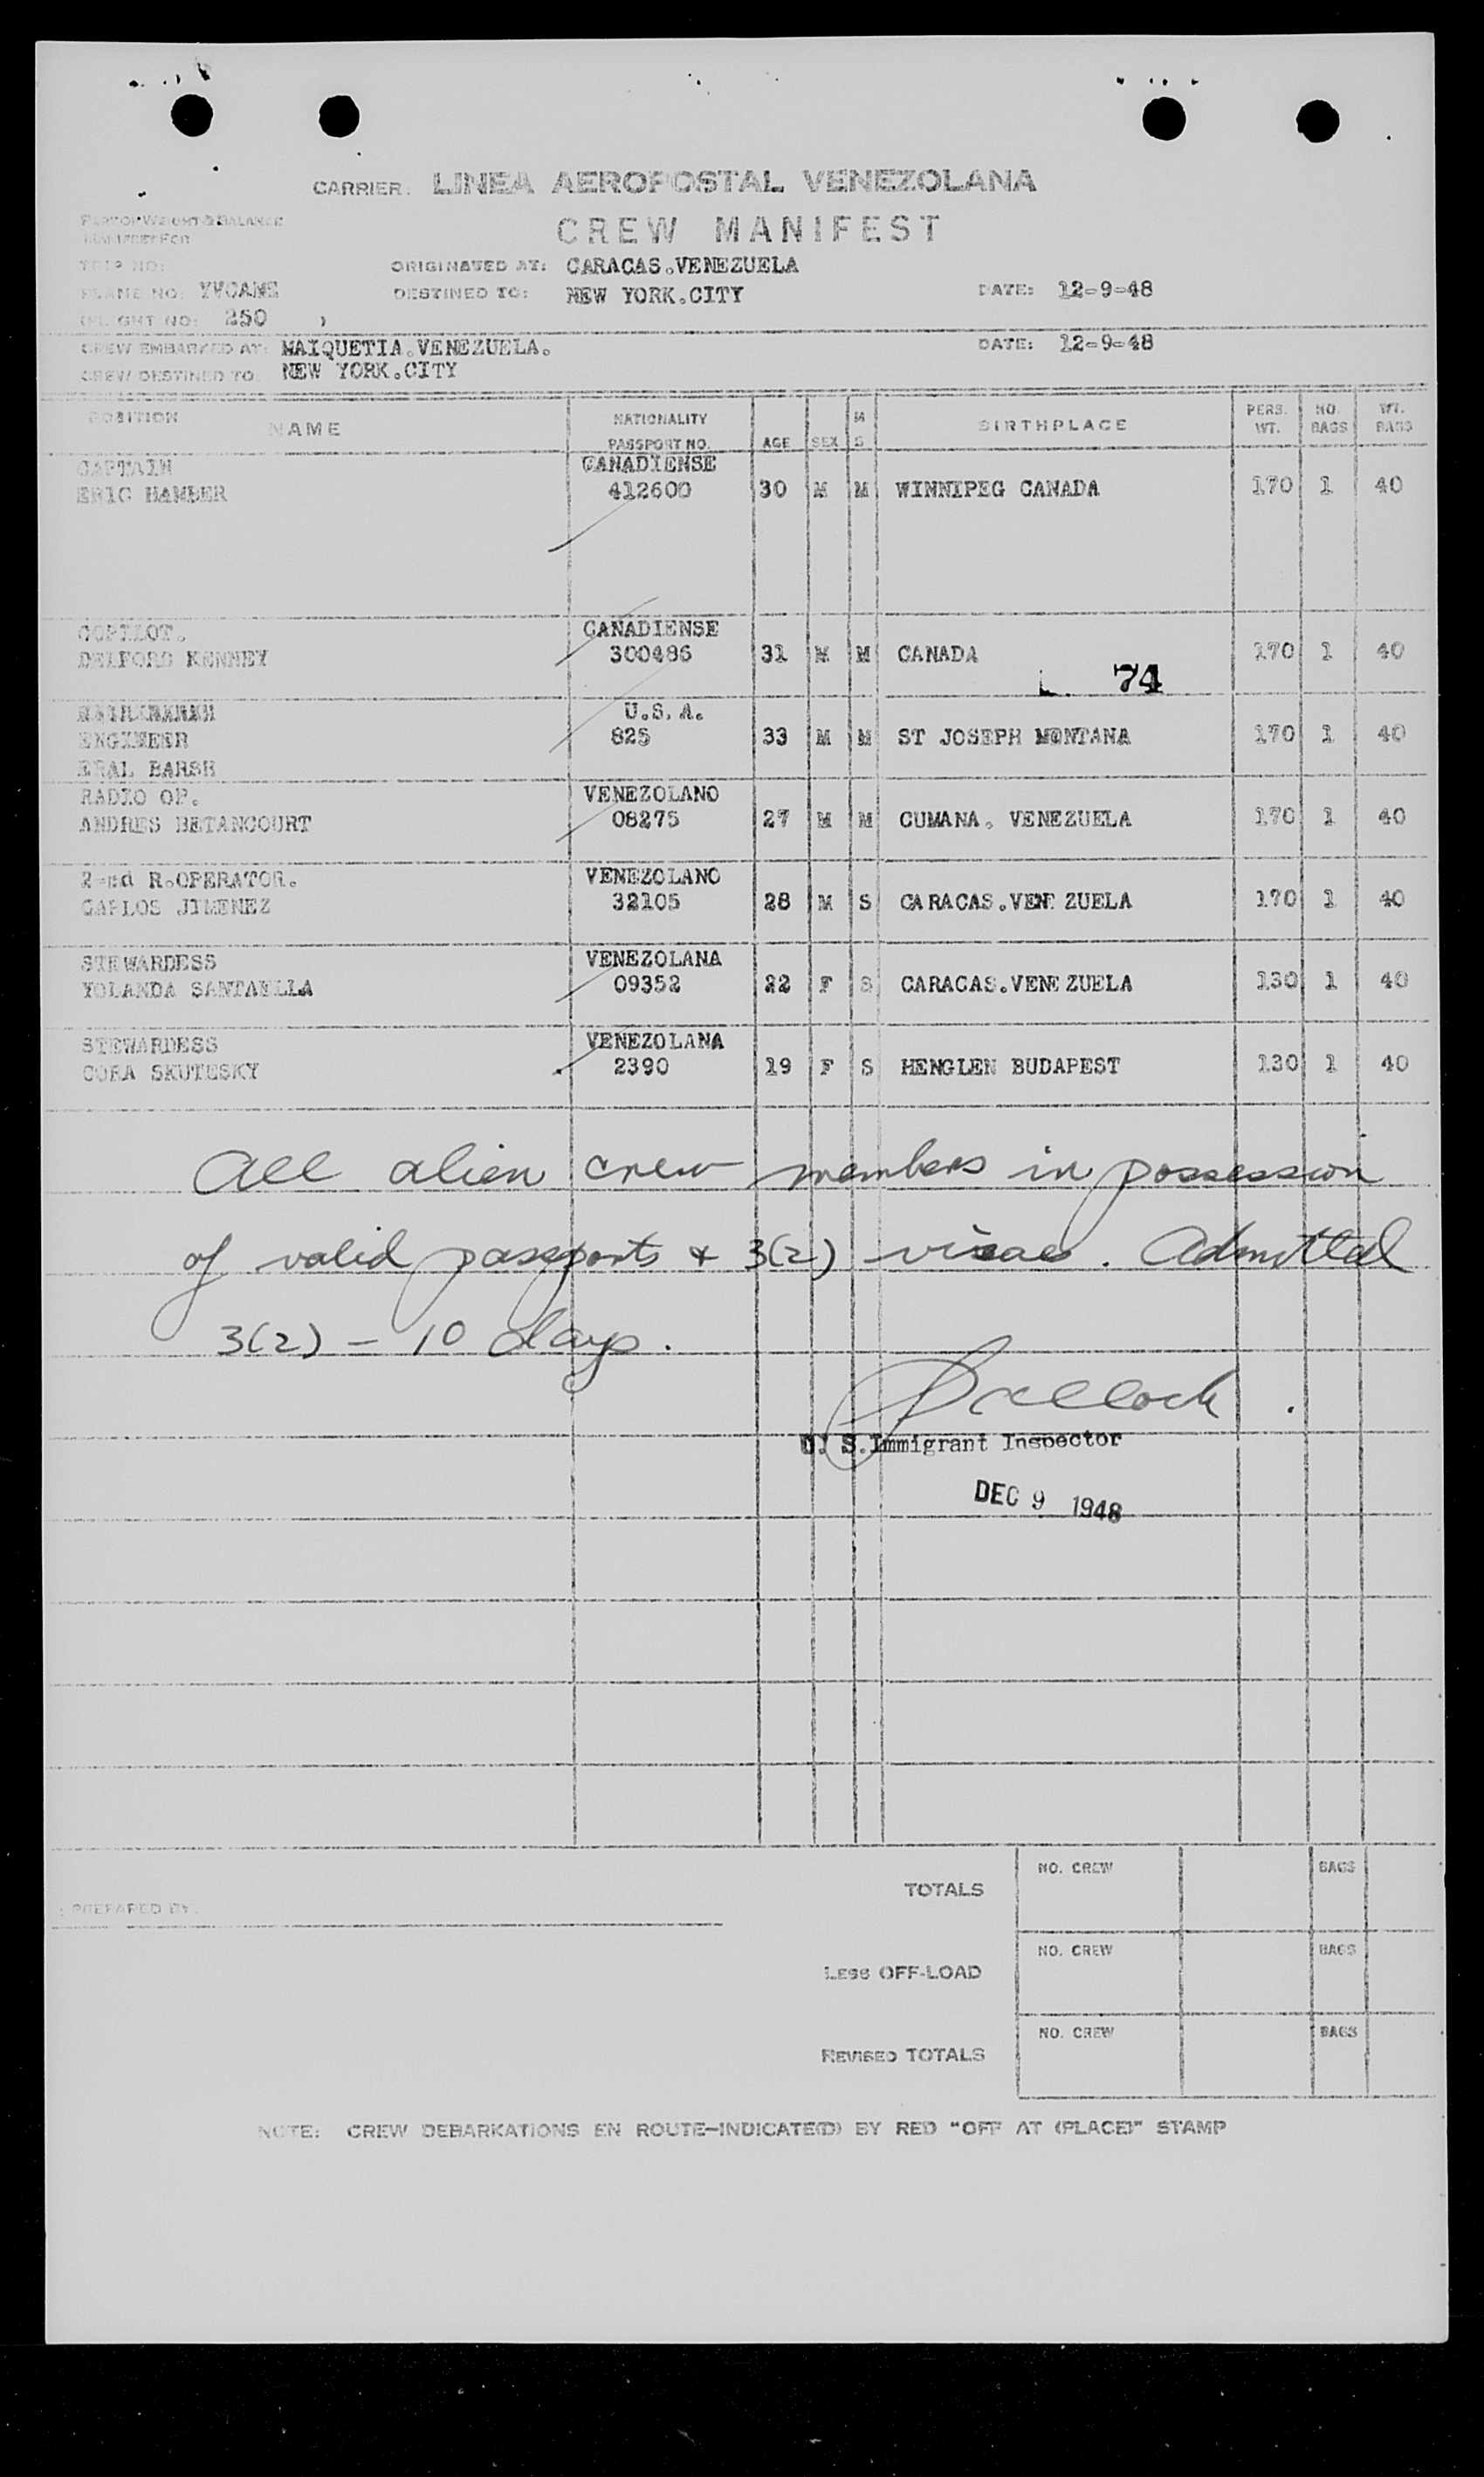 CARRIER: LINEA AEROPOSTAL VENEZOLANA
PART OF WEIGHT & BALANCE
MANIFEST FOR
CREW MANIFEST
TRIP NO:
ORIGINATED AT: CARACAS.VENEZUELA
PLANE NO: YVCANE
DESTINED TO: NEW YORK.CITY
DATE: 12-9-48
(FLIGHT NO: 250 )
CREW EMBARKED AT: MAIQUETIA.VENEZUELA.
DATE: 12-9-48
CREW DESTINED TO: NEW YORK.CITY
POSITION NAME NATIONALITY PASSPORT NO. AGE SEX M S BIRTHPLACE PERS. WT. NO. BAGS WT. BAGS
CAPTAIN CANADIENSE
ERIC HAMBER 412600 30 M M WINNIPEG CANADA 170 1 40
COPILOT. CANADIENSE
DELFORD KENNEY 300486 31 M M CANADA 170 1 40
74
U.S.A.
ENGINEER 825 33 M M ST JOSEPH MONTANA 170 1 40
ERAL BARSH
RADIO OP. VENEZOLANO
ANDRES BETANCOURT 08275 27 M M CUMANA. VENEZUELA 170 1 40
2-nd R.OPERATOR. VENEZOLANO
CARLOS JIMENEZ 32105 28 M S CARACAS.VENE ZUELA 170 1 40
STEWARDESS VENEZOLANA
YOLANDA SANTAELLA 09352 22 F S CARACAS.VENE ZUELA 130 1 40
STEWARDESS VENEZOLANA
CORA SKUTESKY 2390 19 F S HENGLEN BUDAPEST 130 1 40
All alien crew members in possession
of valid passports & 3(2) visaes. Admitted
3(2) - 10 days.
U. S. Immigrant Inspector
DEC 9 1948
NO. CREW BAGS
TOTALS
PREPARED BY:
NO. CREW BAGS
LESS OFF-LOAD
NO. CREW BAGS
REVISED TOTALS
NOTE: CREW DEBARKATIONS EN ROUTE-INDICATE(D) BY RED "OFF AT (PLACE)" STAMP